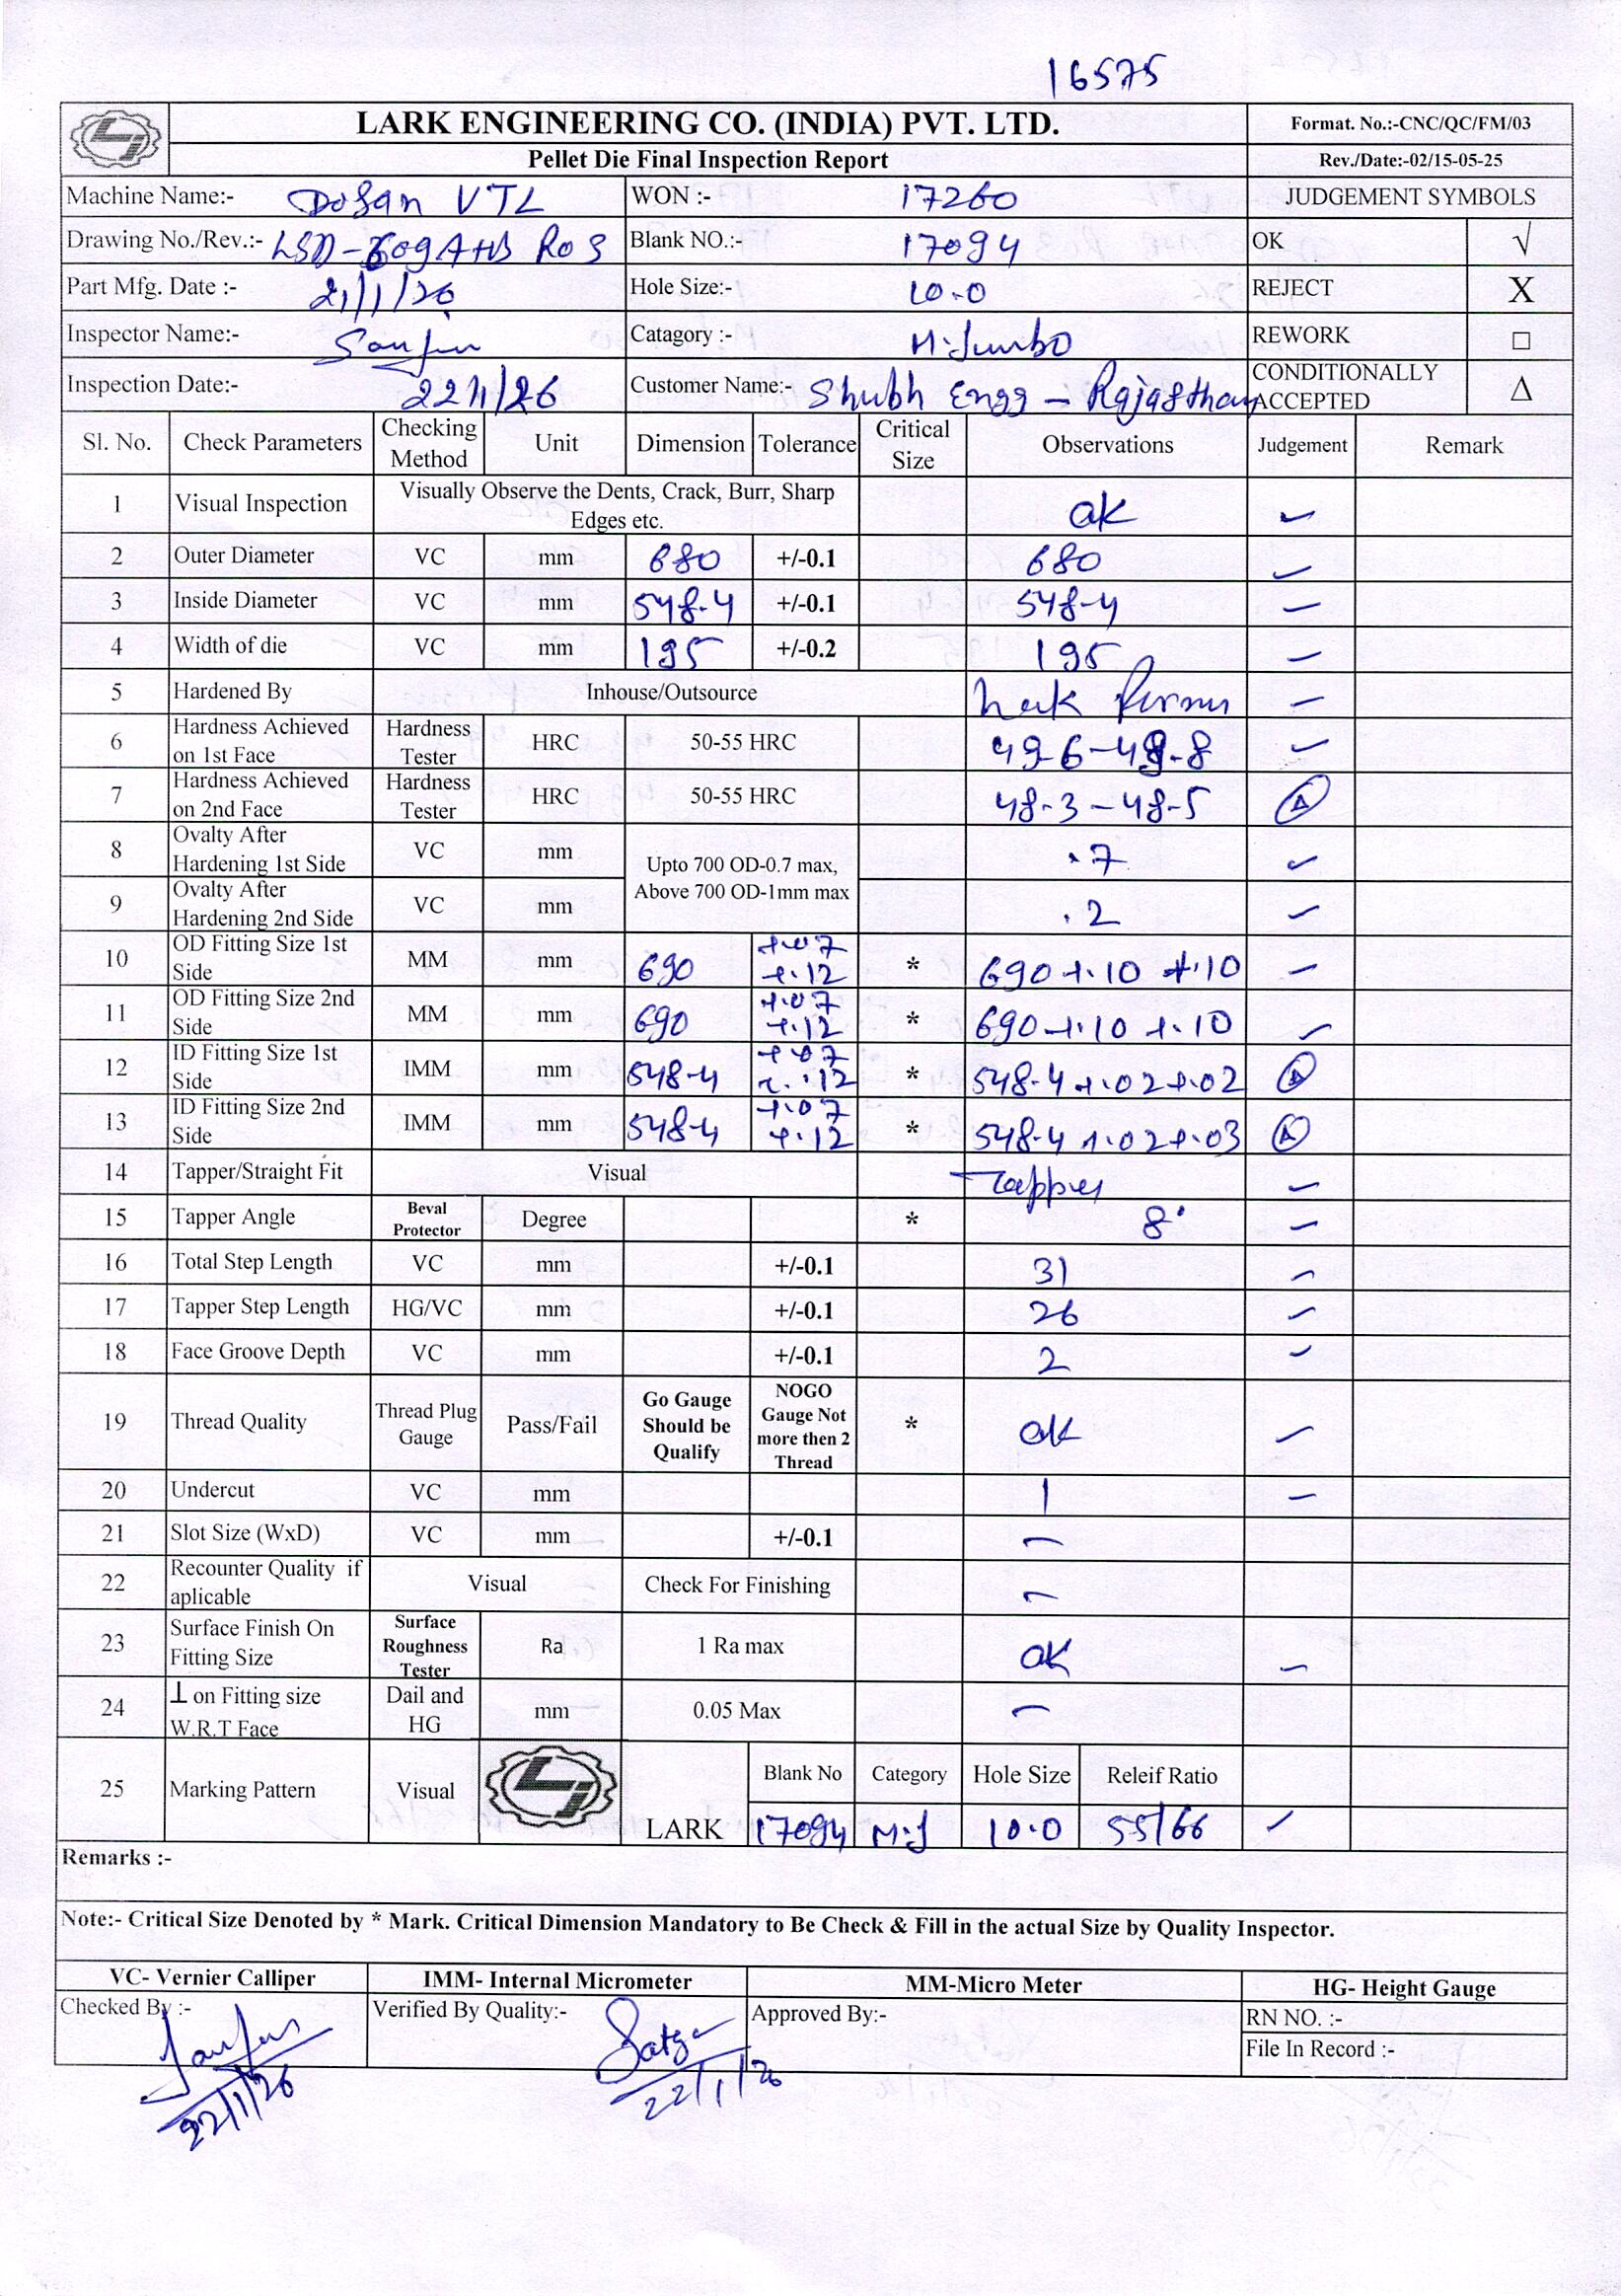 16575
LARK ENGINEERING CO. (INDIA) PVT. LTD. Format. No.:-CNC/QC/FM/03
Pellet Die Final Inspection Report Rev./Date:-02/15-05-25
Machine Name:- Dosan VTL WON :- 17260 JUDGEMENT SYMBOLS
Drawing No./Rev.:- Blank NO.:- 17094 OK √
Part Mfg. Date :- 21/1/26 Hole Size:- 10.0 REJECT X
Inspector Name:- Catagory :- M.Jumbo REWORK □
Inspection Date:- 22/1/26 Customer Name:- Shubh Engg - Rajasthan CONDITIONALLY ACCEPTED Δ
Sl. No. Check Parameters Checking Method Unit Dimension Tolerance Critical Size Observations Judgement Remark
1 Visual Inspection Visually Observe the Dents, Crack, Burr, Sharp Edges etc. ok ✓
2 Outer Diameter VC mm 680 +/-0.1 680 ✓
3 Inside Diameter VC mm 548.4 +/-0.1 548.4 ✓
4 Width of die VC mm 195 +/-0.2 195 ✓
5 Hardened By Inhouse/Outsource ✓
6 Hardness Achieved on 1st Face Hardness Tester HRC 50-55 HRC ✓
7 Hardness Achieved on 2nd Face Hardness Tester HRC 50-55 HRC 48.3 - 48.5 Δ
8 Ovalty After Hardening 1st Side VC mm Upto 700 OD-0.7 max, Above 700 OD-1mm max .7 ✓
9 Ovalty After Hardening 2nd Side VC mm .2 ✓
10 OD Fitting Size 1st Side MM mm 690 +.07 +.12 * 690 +.10 +.10 ✓
11 OD Fitting Size 2nd Side MM mm 690 +.07 +.12 * 690 +.10 +.10 ✓
12 ID Fitting Size 1st Side IMM mm 548.4 +.07 +.12 * 548.4 +.02 +.02 Δ
13 ID Fitting Size 2nd Side IMM mm 548.4 +.07 +.12 * 548.4 +.02 +.03 Δ
14 Tapper/Straight Fit Visual Tapper ✓
15 Tapper Angle Beval Protector Degree * 8° ✓
16 Total Step Length VC mm +/-0.1 31 ✓
17 Tapper Step Length HG/VC mm +/-0.1 26 ✓
18 Face Groove Depth VC mm +/-0.1 2 ✓
19 Thread Quality Thread Plug Gauge Pass/Fail Go Gauge Should be Qualify NOGO Gauge Not more then 2 Thread * ok ✓
20 Undercut VC mm 1 ✓
21 Slot Size (WxD) VC mm +/-0.1 -
22 Recounter Quality if aplicable Visual Check For Finishing -
23 Surface Finish On Fitting Size Surface Roughness Tester Ra 1 Ra max ok ✓
24 ⊥ on Fitting size W.R.T Face Dail and HG mm 0.05 Max -
25 Marking Pattern Visual LARK Blank No Category Hole Size Releif Ratio
17094 M.J 10.0 55/66 ✓
Remarks :-
Note:- Critical Size Denoted by * Mark. Critical Dimension Mandatory to Be Check & Fill in the actual Size by Quality Inspector.
VC- Vernier Calliper IMM- Internal Micrometer MM-Micro Meter HG- Height Gauge
Checked By :- Verified By Quality:- Approved By:- RN NO. :-
File In Record :-
22/1/26 22/1/26